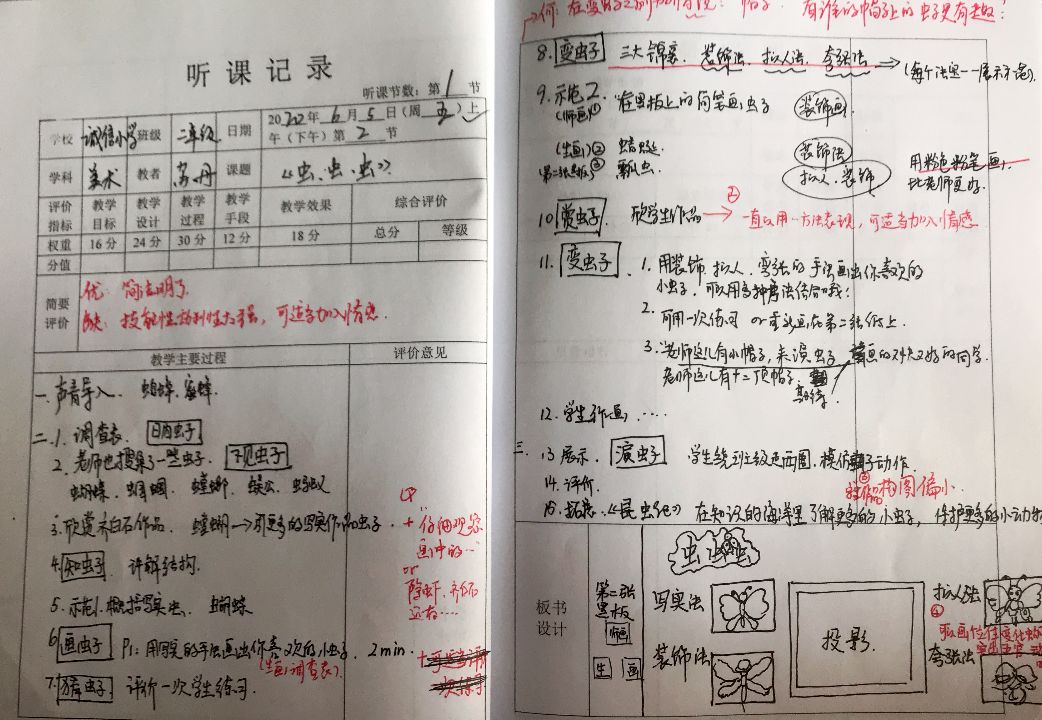 听课记录
听课节数：第 1 节
学校 诚信小学 班级 二年级 日期 2022年6月5日（周五）上
午（下午）第 2 节
学科 美术 教者 苏丹 课题 《虫、虫、虫》
评价指标 教学目标 教学设计 教学过程 教学手段 教学效果 综合评价
权重 16分 24分 30分 12分 18分 总分 等级
分值
简要评价
优：简洁明了
缺：技能性 太强，可适当加入情感.
教学主要过程 评价意见
一.声音导入 蜜蜂.
二.1.调查表.
2.老师也搜集了一些虫子.
蝴蝶、蜻蜓、螳螂、蜈蚣、蚂蚁
3.欣赏齐白石作品. 更多的写实作品虫子.
+仔细观察
画中的…
or
除虾、齐白石
还有……
4.知虫子 讲解结构.
5.示范1.概括写实法、蝴蝶
6.画虫子 P1：用写实的手法画出你喜欢的小虫子. 2min.
（生画调查表）.
7.猜虫子 评价一次学生练习.
8.变虫子 三大锦囊、装饰法、拟人法、夸张法
9.示范2. 在黑板上的简笔画虫子 装饰画
（师画）①
（生画）② 蜻蜓 装饰法
③ 瓢虫. 拟人、装饰
用粉色粉笔画，
比老师更好.
10.赏虫子. 欣学生作品 → ② 一直以用一方法表现，可适当加入情感
11.变虫子. 1.用装饰、拟人、夸张的手法画出你喜欢的
小虫子，可以用多种 法结合哦！
2.可用一次练习 or 重新画在第二张纸上.
3.老师这儿有小帽子，来演虫子 画的又快又好的同学.
老师这儿有十二顶帽子
12.学生作画，….
三.
13.展示. 演虫子 学生绕到班级 圈，模仿 子动作.
14.评价. 构图偏小.
15.拓展.《昆虫记》 在知识的海洋里了解更多的小虫子，保护更多的小动物
板书设计
虫 虫
第二张黑板
师画
生 画
写实法
装饰法
投影
拟人法
夸张法